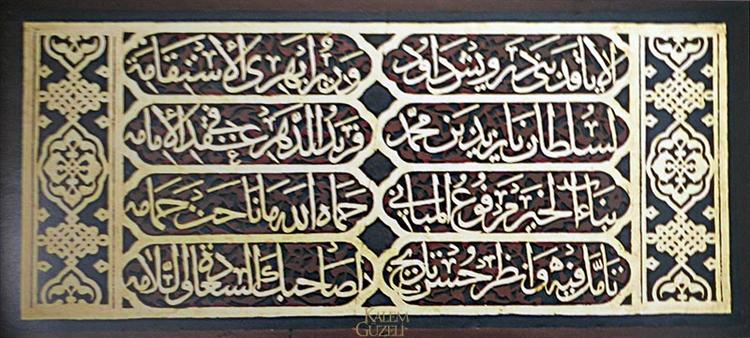 ألا يا قد بنى درويش داود وزير الاستقامة
لسلطان بايزيد بن محمد فريد الدهر في عقد الإمامه
بناء الخير مرفوع المباني حماه الله ما ناحت حمامه
تأمل فيه وانظر حسن تاريخ لصاحبك السعادة والسلامه
KALEM GÜZELİ